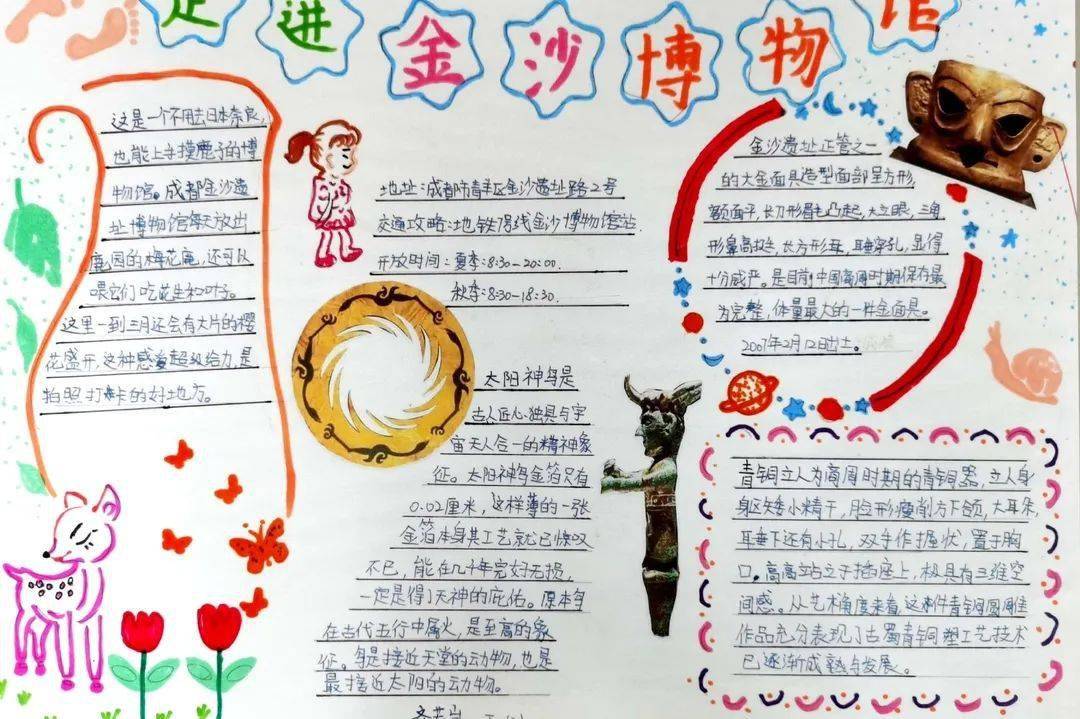 走进金沙博物馆
这是一个不用去日本奈良,
也能上手摸鹿子的博
物馆。成都金沙遗
址博物馆每天放出
鹿园的梅花鹿,还可以
喂它们吃花生和叶子。
这里一到三月还会有大片的樱
花盛开,这种感受超级给力,是
拍照打卡的好地方。
地址:成都市青羊区金沙遗址路2号
交通攻略:地铁7号线金沙博物馆站
开放时间:夏季:8:30-20:00.
秋季:8:30-18:30.
太阳神鸟是
古人匠心独具与宇
宙天人合一的精神象
征。太阳神鸟金箔只有
0.02厘米,这样薄的一张
金箔本身其工艺就已惊叹
不已,能在几千年完好无损,
一定是得了天神的庇佑。原本鸟
在古代五行中属火,是至高的象
征。鸟是接近天堂的动物,也是
最接近太阳的动物。
金沙遗址正管之一
的大金面具造型面部呈方形,
额面平,长刀形眉毛凸起,大立眼,三角
形鼻高挺,长方形耳,耳垂穿孔,显得
十分威严。是目前中国商周时期保存最
为完整,体量最大的一件金面具。
2007年2月12日出土。
青铜立人为商周时期的青铜器,立人身
身区矮小精干,脸形瘦削方下颌,大耳朵,
耳垂下还有小孔,双手作握状,置于胸
口。高高站立于插座上,极具有三维空
间感。从艺术角度来看,这件青铜圆雕
作品充分表现了古蜀青铜塑工艺技术
已逐渐成熟与发展。